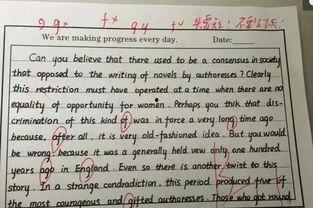 g gx fx gy fv
We are making progress every day. Date:
Can you believe that there used to be a consensus in society
that opposed to the writing of novels by authoresses? Clearly
this restriction must have operated at a time when there are no
equality of opportunity for women. Perhaps you thik that dis-
crimination of this kind of was in force a very long time ago
because, after all. it is very old-fashioned idea. But you would
be wrong, because it was a generally held view only one hundred
years ago in England. Even so there is another twist to this
story. In a strange condradiction, this period produced five of
the most courageous and gifted authoresses. Those who got round